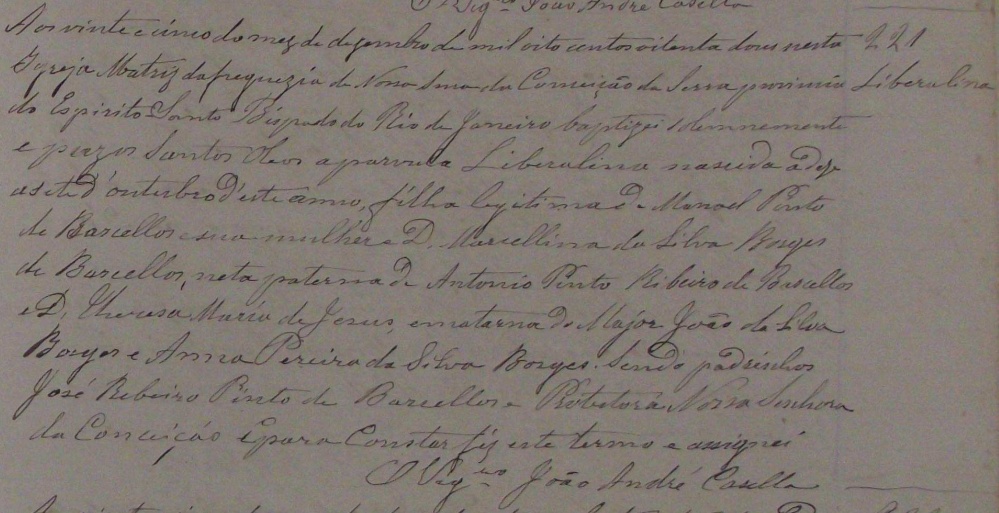 O Vigro João André Casella
Aos vinte e cinco do mez de dezembro de mil oito centos oitenta dous nesta 221
Igreja Matriz da freguezia de Nossa Snra da Conceição da Serra provincia Liberalina
do Espirito Santo Bispado do Rio de Janeiro baptizei solemnemente
e puz os Santos Oleos a parvula Liberalina nascida a deze
asete d'outubro d'este anno, filha legitima de Manoel Pinto
de Barcellos e sua mulher D. Marcellina da Silva Borges
de Barcellos, neta paterna de Antonio Pinto Ribeiro de Barcellos
e D. Theresa Maria de Jesus, e materna do Major João da Silva
Borges e Anna Pereira da Silva Borges. Sendo padrinhos
José Ribeiro Pinto de Barcellos e Protetora Nossa Senhora
da Conceição E para Constar fiz este termo e assignei
O Vigro João André Casella